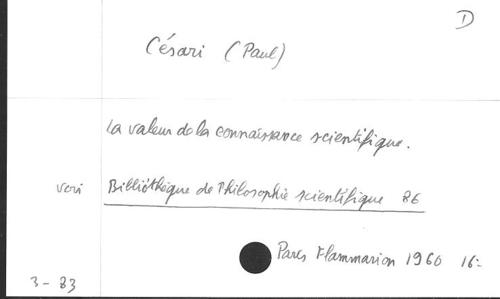 D
Césari (Paul)
La valeur de la connaissance scientifique.
veri Bibliothèque de Philosophie scientifique 86
Paris Flammarion 1960 16:
3-83